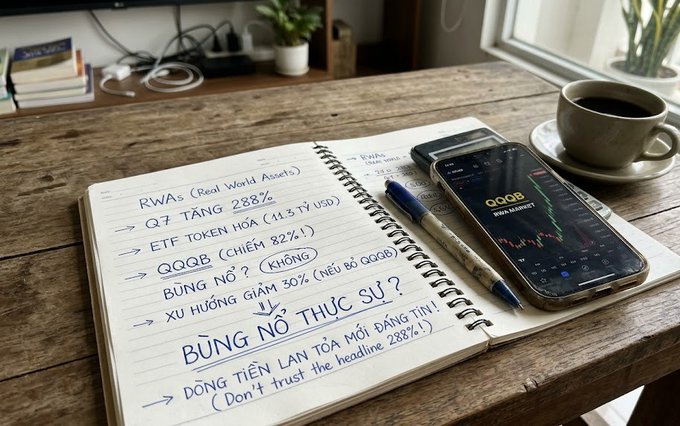 RWAs (Real World Assets)
→ Q7 TĂNG 288%
→ ETF TOKEN HÓA (11.3 TỶ USD)
→ QQQB (CHIẾM 82%!)
BÙNG NỔ? KHÔNG
→ XU HƯỚNG GIẢM 30% (NẾU BỎ QQQB)
BÙNG NỔ THỰC SỰ?
→ DÒNG TIỀN LAN TỎA MỚI ĐÁNG TIN!
(Don't trust the headline 288%!)
→ RWAs
QQQB
RWA MARKET